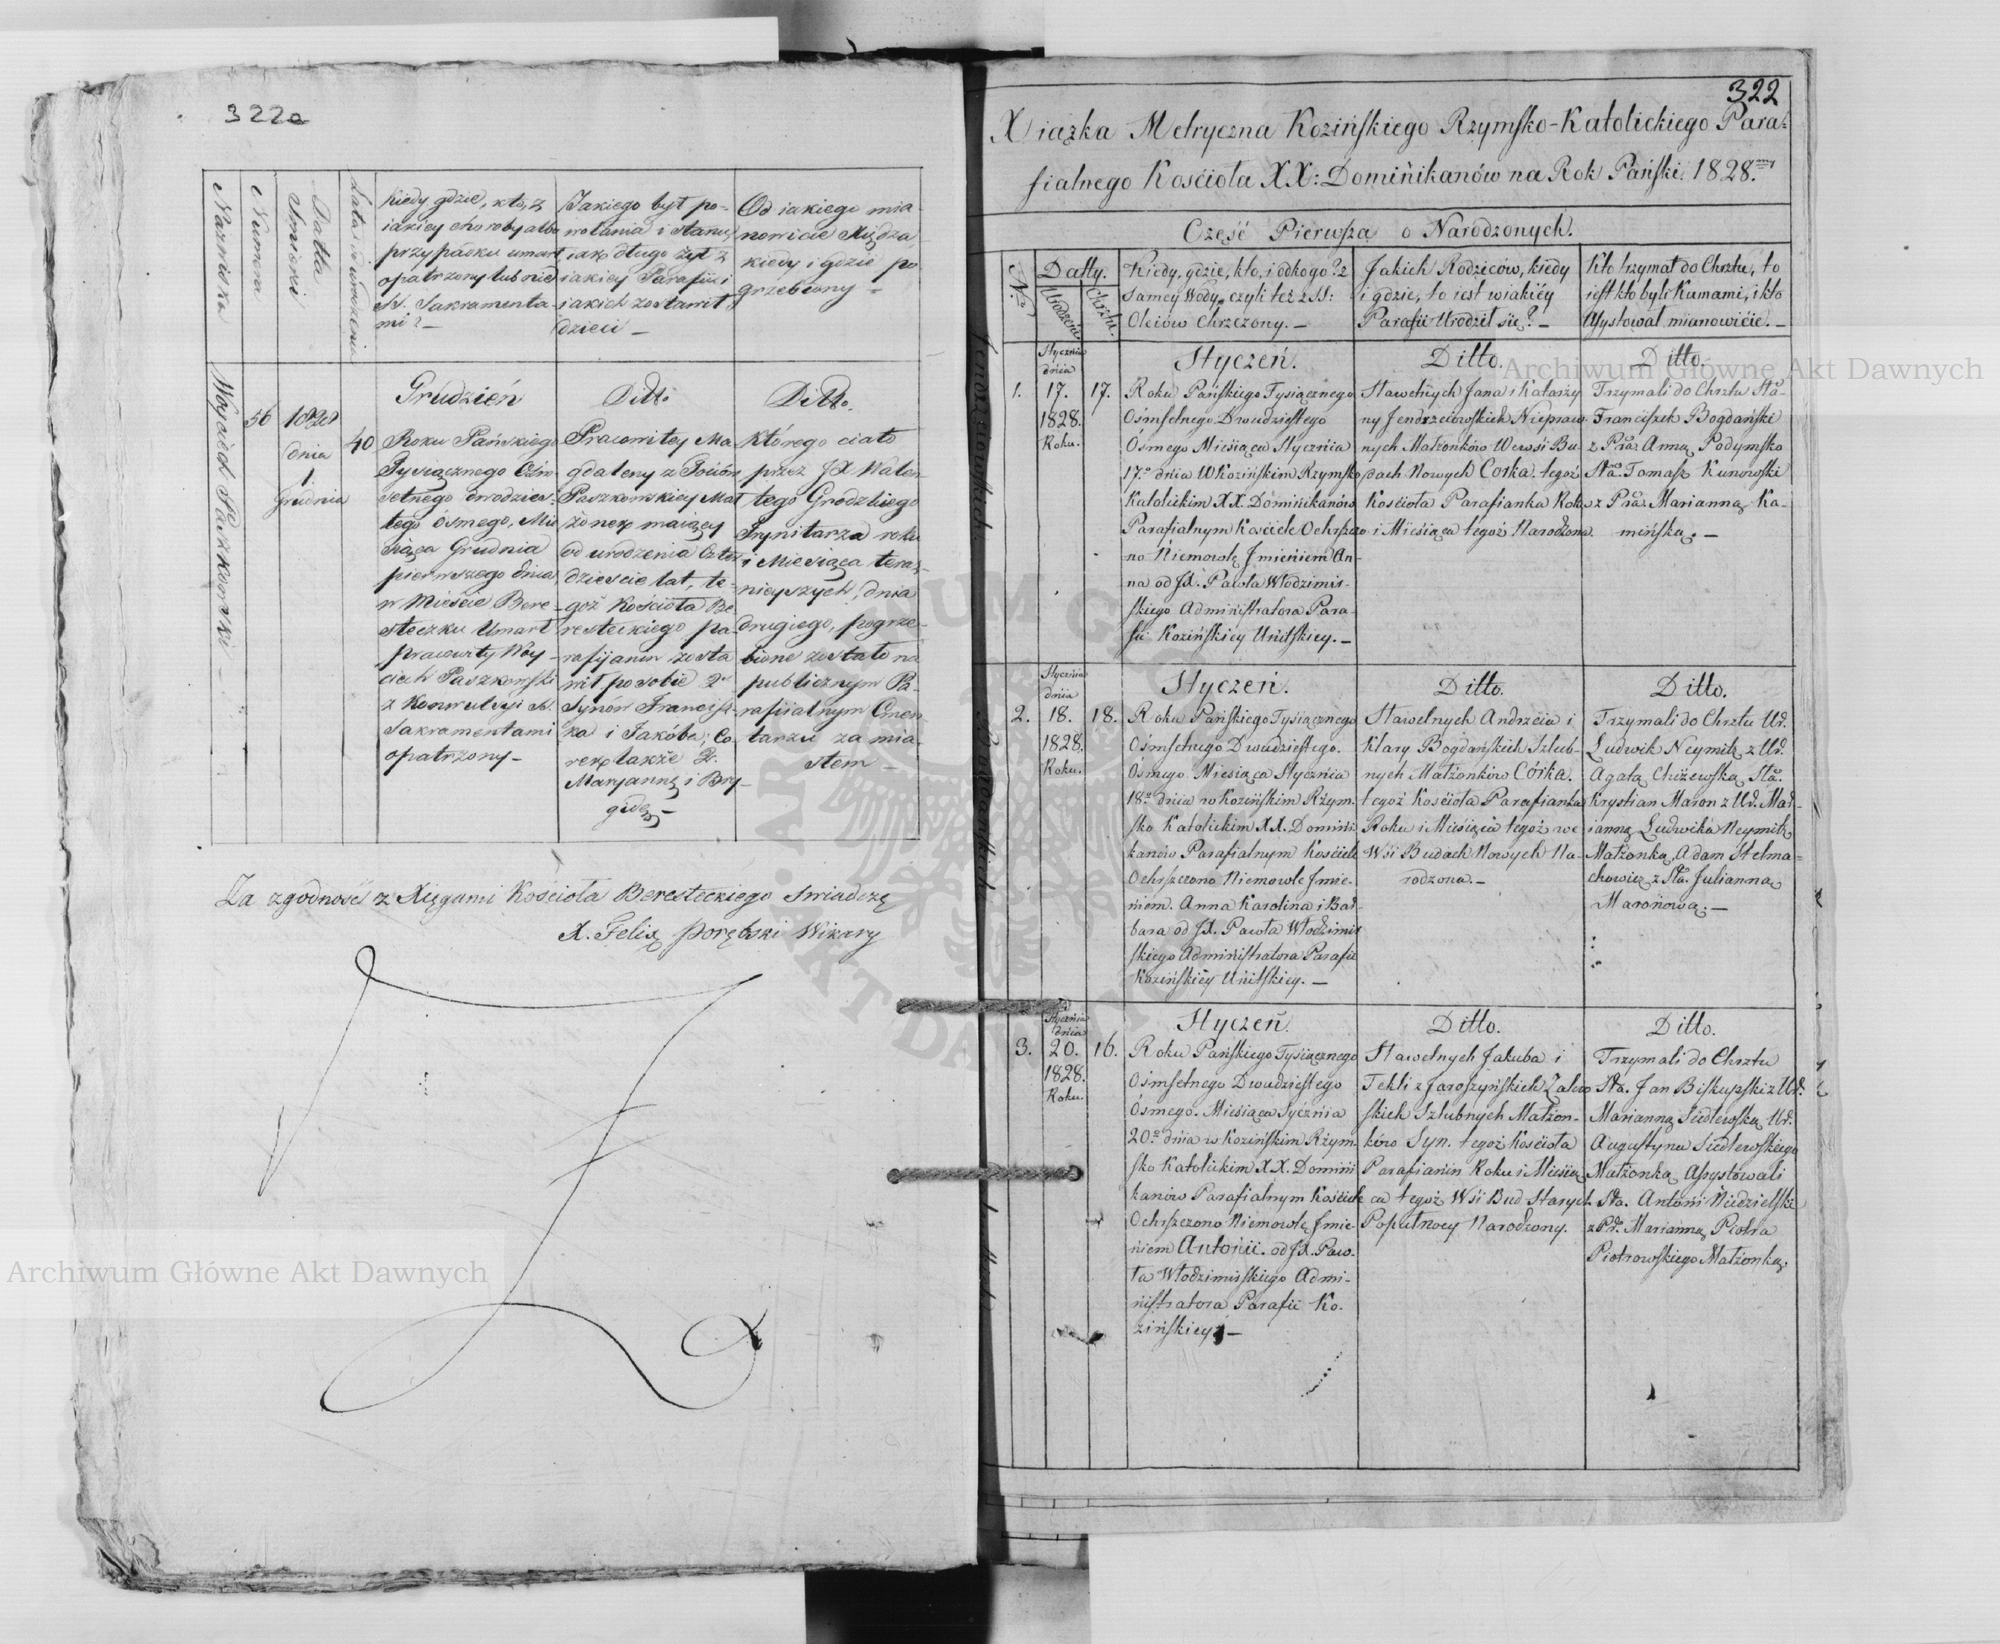 322a
Nazwiska
Numera
Datta Smierci
Lata od urodzenia
kiedy gdzie, kto, z
iakiey choroby albo
przypadku umarł
opatrzony lub nie
SS. Sakramenta-
mi? —
Jakiego był po-
wołania i stanu,
iak długo żył z
iakiey Parafii i
iakich zostawił
dzieci —
Od iakiego mia-
nowicie Xiędza,
kiedy i gdzie po-
grzebiony —
Woyciech Paszkowski —
56
1828
dnia
1
Grudnia
40
Grudzień
Roku Pańskiego
Tysiącznego Ośm-
setnego dwódzies-
tego ósmego, Mie
siąca Grudnia
pierwszego dnia
w Mieście Bere-
steczku Umarł
pracowity Woy-
ciech Paszkowski
z Konwulsyi SS.
Sakramentami
opatrzony —
Ditto
Pracowitey Ma-
gdaleny z
Paszkowskiey Mał
żonek maiący
od urodzenia Czter
dzieście lat, te-
goż Kościoła Be
resteckiego pa-
rafijanin zosta
wił po sobie 2ch
Synów Francisz-
ka i Jakóba; Có
rek także 2.
Maryannę i Bry-
gidę —
Ditto.
którego ciało
przez JX Walen
tego Grodzkiego
Trynitarza roku
i Miesiąca teraź-
nieyszych, dnia
drugiego, pogrze-
bione zostało na
publicznym Pa-
rafiialnym Cmen
tarzu za mia-
stem —
Za zgodność z Xięgami Kościoła Beresteckiego świadczę
X. Felix Porębski Wikary
322
Xiążka Metryczna Kozińskiego Rzymsko-Katolickiego Para-
fialnego Kościoła XX: Dominikanów na Rok Pański 1828.
Część Pierwsza o Narodzonych.
Nro
Datty.
Urodzenia
Chrztu.
Kiedy, gdzie, kto, i od kogo? z
samey Wody, czyli też z SS:
Oleiów Chrzczony. —
Jakich Rodziców, kiedy
i gdzie, to iest w iakiéy
Parafii Urodził się? —
Kto trzymał do Chrztu, to
iest kto byli Kumami, i kto
Assystował mianowicie. —
1.
Stycznia
dnia
17.
1828.
Roku.
17.
Styczeń.
Roku Pańskiego Tysiącznego
Ośmsetnego Dwudziestego
Osmego Miesiąca Stycznia
17o dnia w Kozińskim Rzymsko
Katolickim XX. Dominikanów
Parafialnym Kościele Ochrzco
no Niemowlę Jmieniem An-
na od JX. Pawła Włodzimir-
skiego Administratora Para-
fii Kozińskiey Unitskiey. —
Ditto.
Sławetnych Jana i Katarzy
ny Jendrzeiowskich Niepraw
nych Małżonków We wsi Bu
dach Nowych Corka. tegoż
Kościoła Parafianka Roku
i Miesiąca tegoż Narodzona.
Ditto.
Trzymali do Chrztu Sła-
Franciszek Bogdański
z Pra. Anną Podymsko
Sła. Tomasz Kunowski
z Pra. Marianną Ka-
mińską. —
2.
Stycznia
dnia
18.
1828.
Roku.
18.
Styczeń.
Roku Pańskiego Tysiącznego
Ośmsetnego Dwudziestego.
Ósmego. Miesiąca Stycznia
18o dnia w Kozińskim Rzym-
sko Katolickim XX. Domini-
kanów Parafialnym Kościele
Ochrzczono Niemowle Jmie-
niem. Anna Karolina i Bar-
bara od JX. Pawła Włodzimir
skiego Administratora Parafii
Kozińskiéy Unitskiey. —
Ditto.
Sławetnych Andrzeia i
Klary Bogdańskich Szlub-
nych Małżonków Córka.
tegoż Kościoła Parafianka
Roku i Miesiąca tegoż we
Wsi Budach Nowych Na-
rodzona. —
Ditto.
Trzymali do Chrztu Ur.
Ludwik Neymitz z Ur.
Agatą Chiżewską, Sła.
Krystian Maron z Ur. Mar-
ianną Ludwika Neymitz
Małżonką, Adam Stelma-
chowicz z Sła. Julianną
Maronową. —
3.
Stycznia
dnia
20.
1828.
Roku.
16.
Styczeń.
Roku Pańskiego Tysiącznego
Ośmsetnego Dwudziestego
Ósmego. Miesiąca Sycznia
20o dnia w Kozińskim Rzym-
sko Katolickim XX. Domini
kanów Parafialnym Kościele
Ochrzczono Niemowlę Jmie-
niem Antonii. od JX. Paw-
ła Włodzimirskiego Admi-
nistratora Parafii Ko-
zińskiey. —
Ditto.
Sławetnych Jakuba i
Tekli z Jaroszyńskich Zalew
skich Szlubnych Małżon-
ków Syn. tegoż Kościoła
Parafianin Roku i Miesią
ca tegoż Wsi Bud Starych
Narodzony.
Ditto.
Trzymali do Chrztu
Sła. Jan Biskupski z Ur.
Marianną Siedlewską, Ur.
Augustyna Siedlewskiego
Małżonką Assystowali
Sła. Antoni Niedzielski
z Pr. Marianną Piotra
Piotrowskiego Małżonką.
Archiwum Główne Akt Dawnych
Archiwum Główne Akt Dawnych